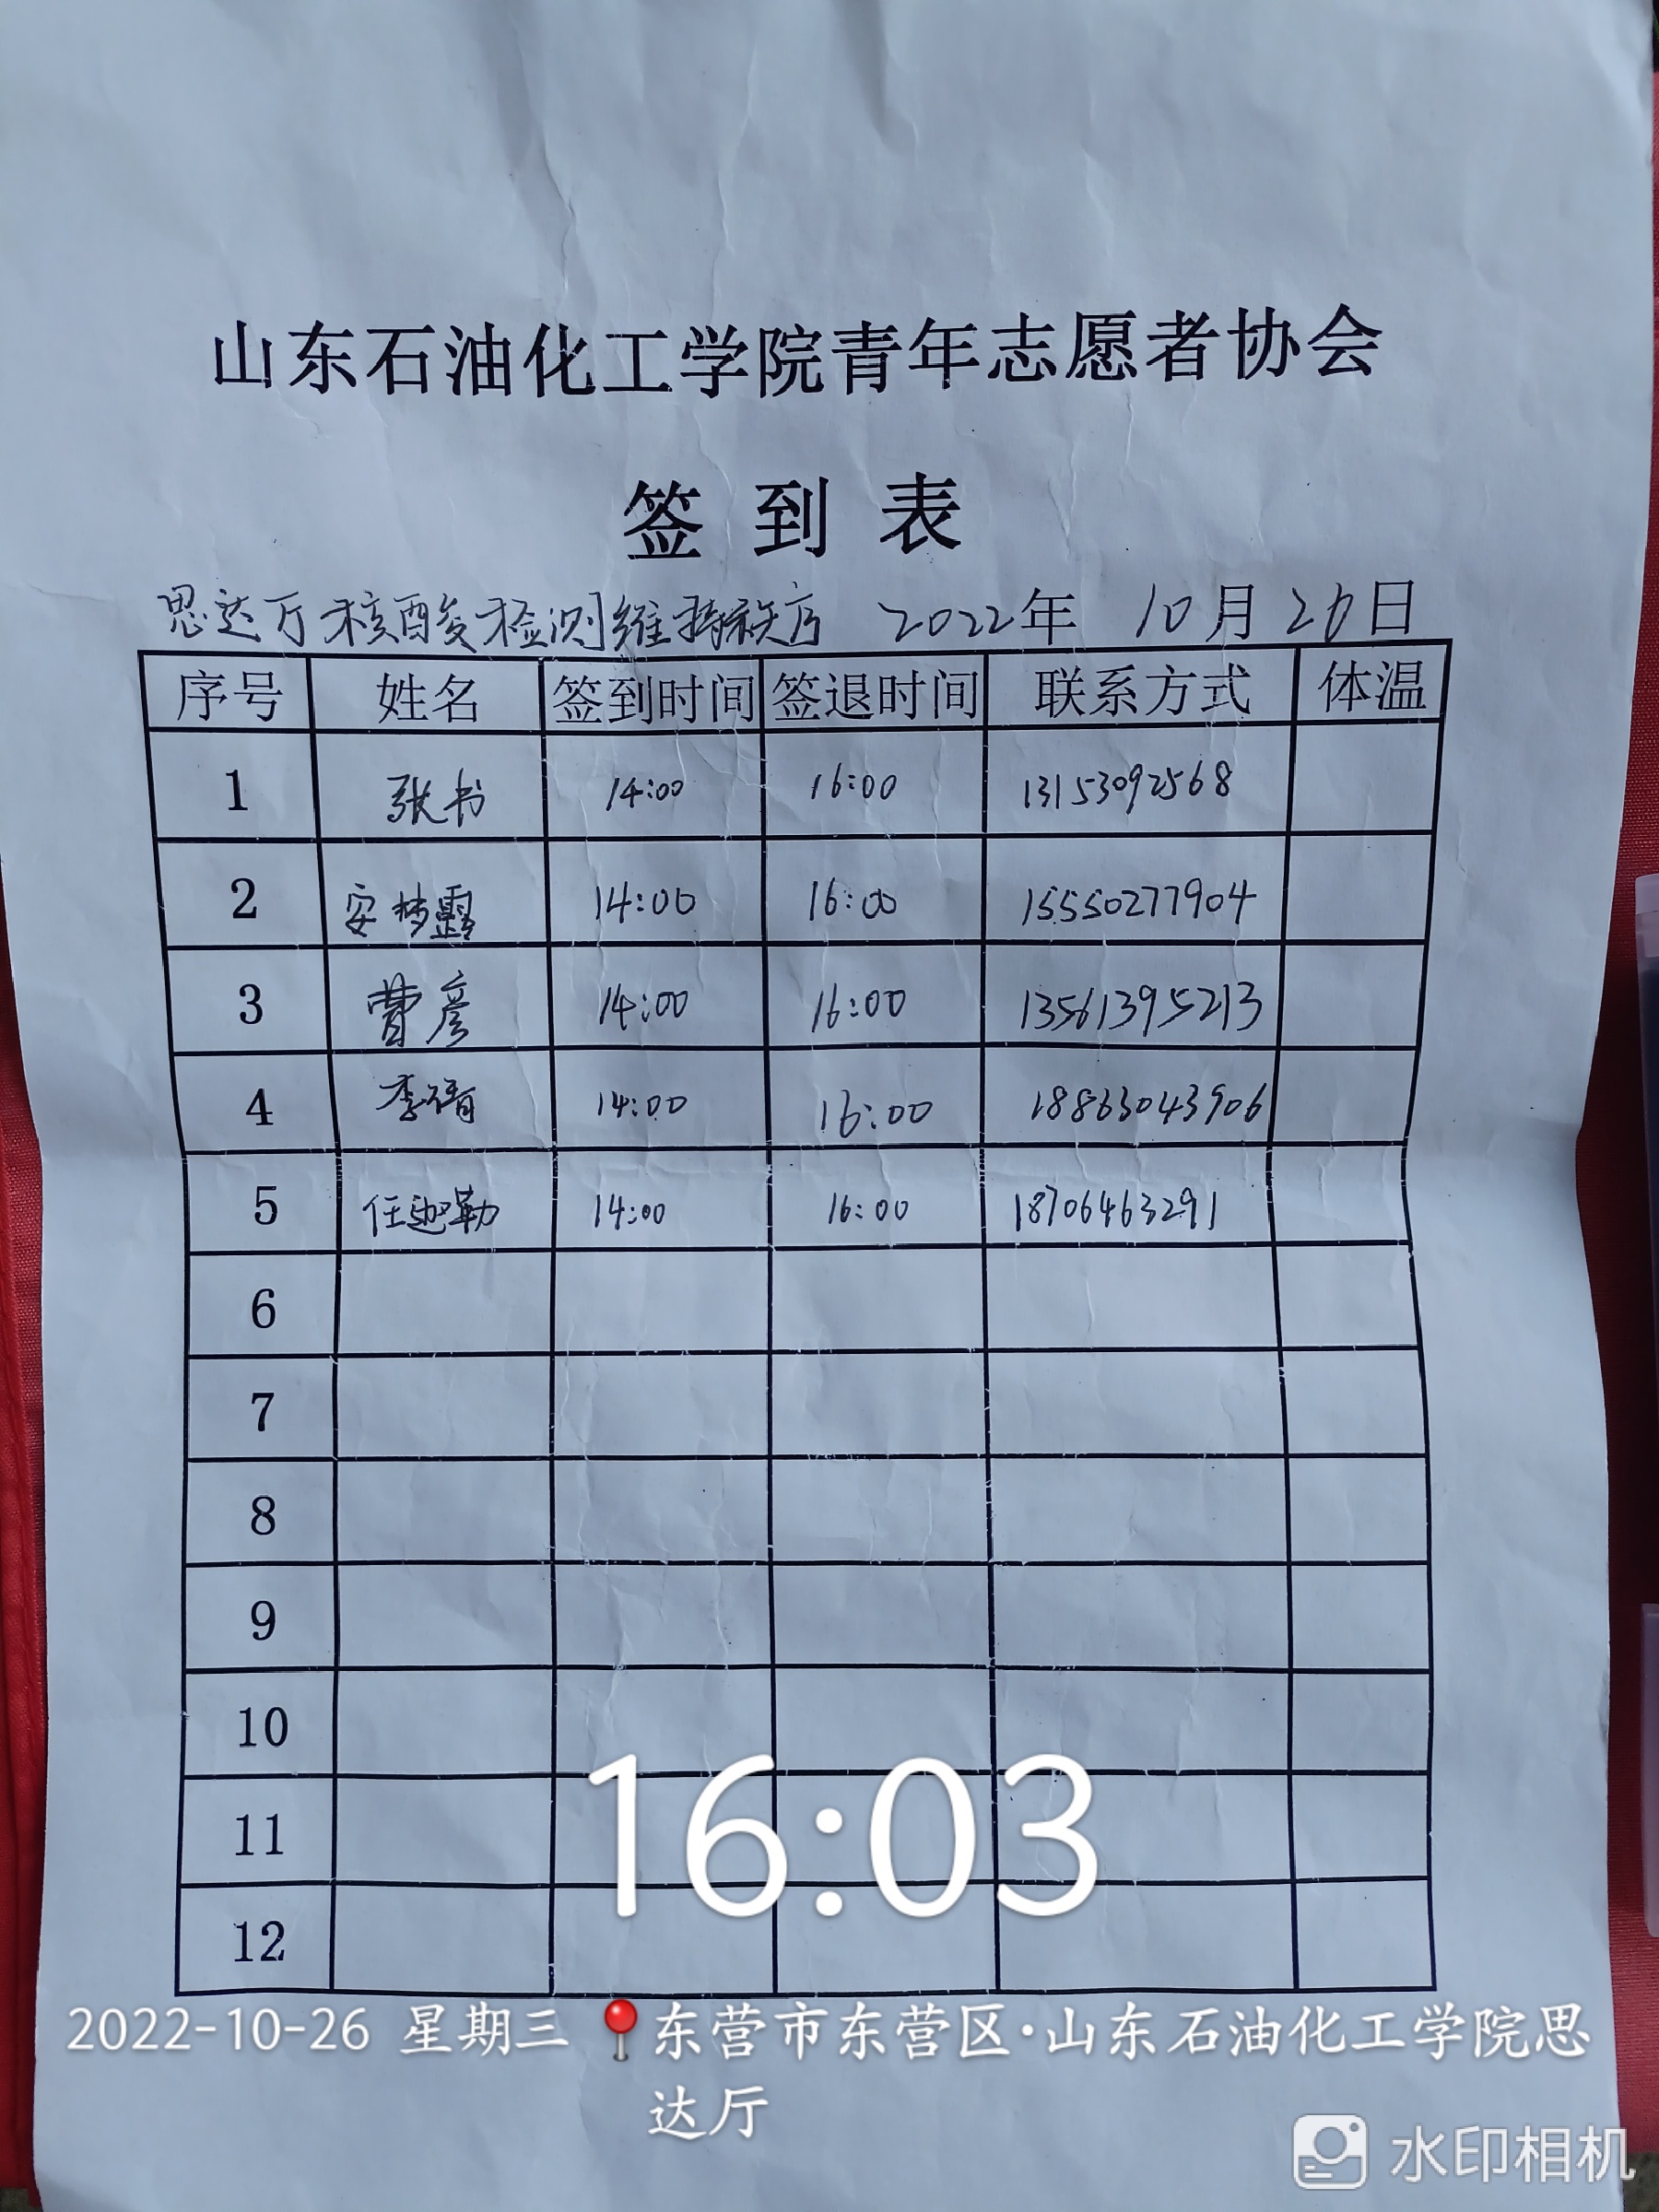 山东石油化工学院青年志愿者协会
签到表
思达厅核酸检测维持秩序 2022年 10月26日
序号 姓名 签到时间 签退时间 联系方式 体温
1 张书 14:00 16:00 13153092568
2 安梦露 14:00 16:00 15550277904
3 曹彦 14:00 16:00 13561395213
4 李倩 14:00 16:00 18863043906
5 任迦勒 14:00 16:00 18706463291
6
7
8
9
10
11
12
16:03
2022-10-26 星期三 东营市东营区·山东石油化工学院思
达厅
水印相机